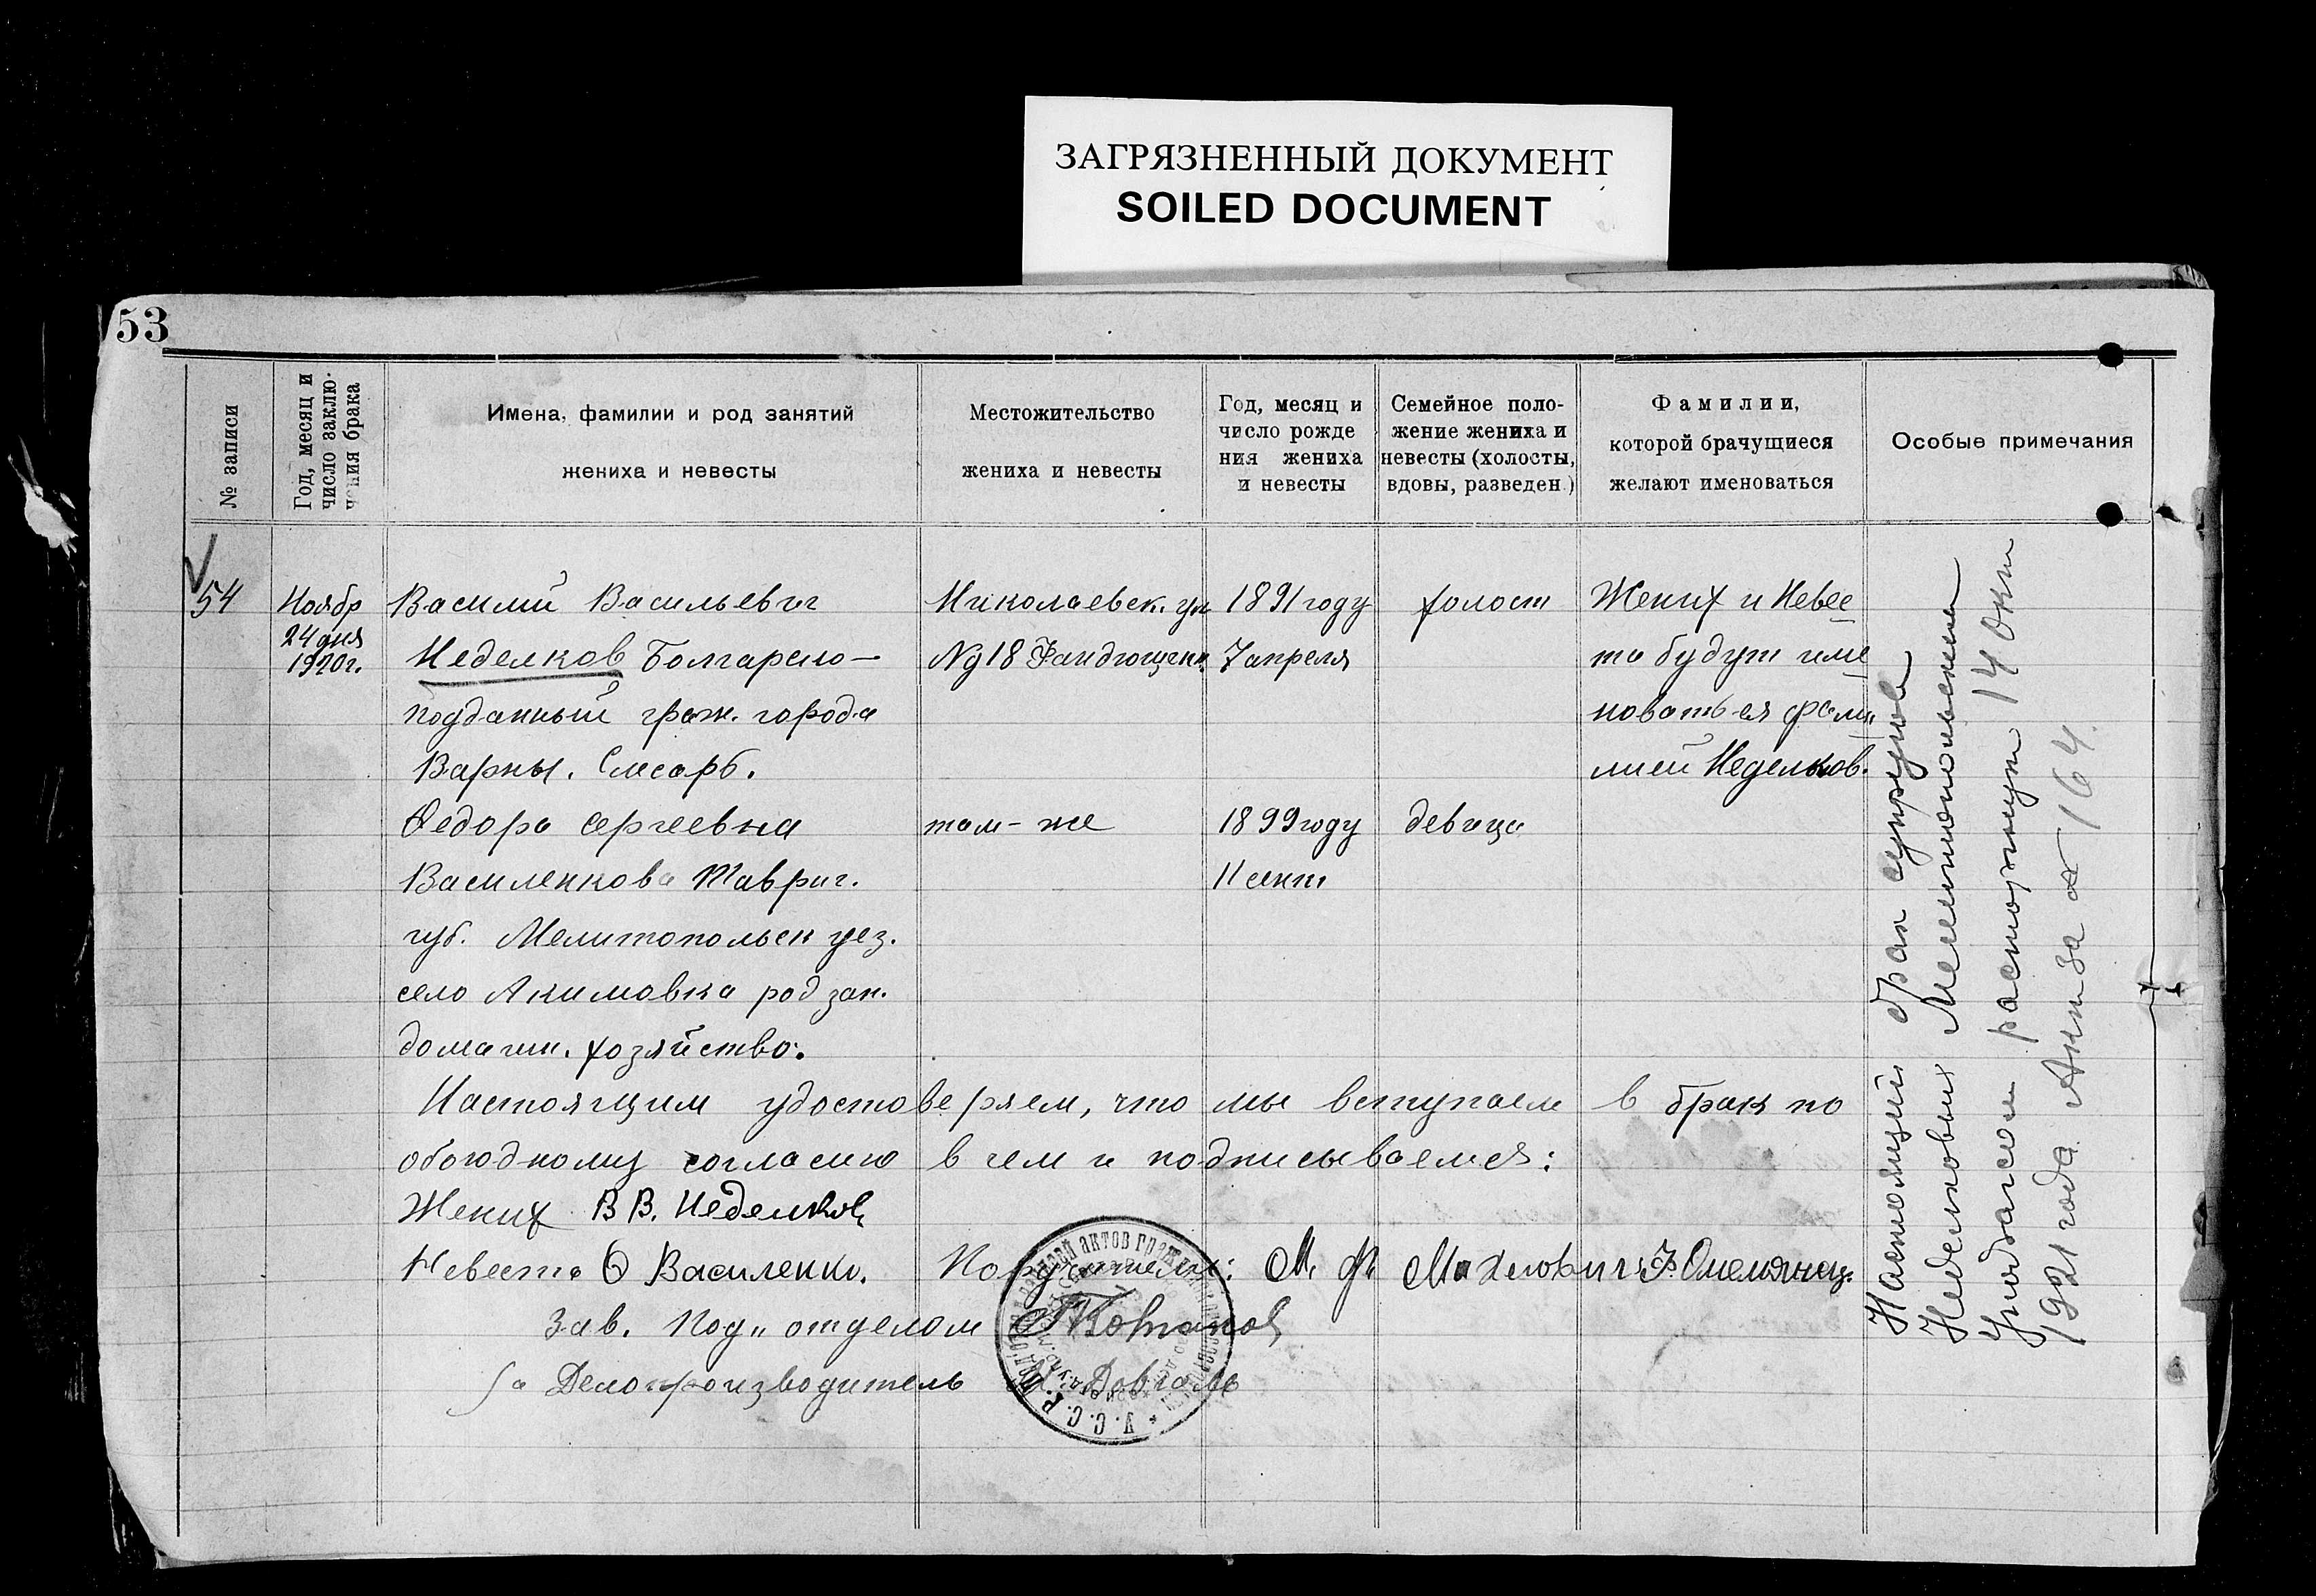 ЗАГРЯЗНЕННЫЙ ДОКУМЕНТ
SOILED DOCUMENT
53
№ записи
Год, месяц и
число заклю-
чения брака
Имена, фамилии и род занятий
жениха и невесты
Местожительство
жениха и невесты
Год, месяц и
число рожде
ния жениха
и невесты
Семейное поло-
жение жениха и
невесты (холосты,
вдовы, разведен.)
Фамилии,
которой брачущиеся
желают именоваться
Особые примечания
54
Ноябр
24 дня
1920г.
Василий Васильевич
Неделков Болгарско-
подданный граж. города
Варны. Слесарь.
Федора Сергеевна
Василенкова Таврич.
губ. Мелитопольск уез.
село Акимовка род зан.
домашн. хозяйство.
Николаевск. ул
№ 18
там-же
1891 году
7 апреля
1899 году
11 сент
холост
девица
Жених и Невес
та будут име
новаться фами
лией Недельков.
Настоящим удостоверяем, что мы вступаем в брак по
обоюдному согласию в чем и подписываемся:
Жених В В. Неделков
Невеста Ф Василенко. Поручители: М. Ф. Махлович
Зав. Под. отделом
Делопроизводитель
У.С.С.Р.
Настоящий брак супругов
Неделковых Мелитопольским
расторжнут 14 Окт
1921 года. за № 164.